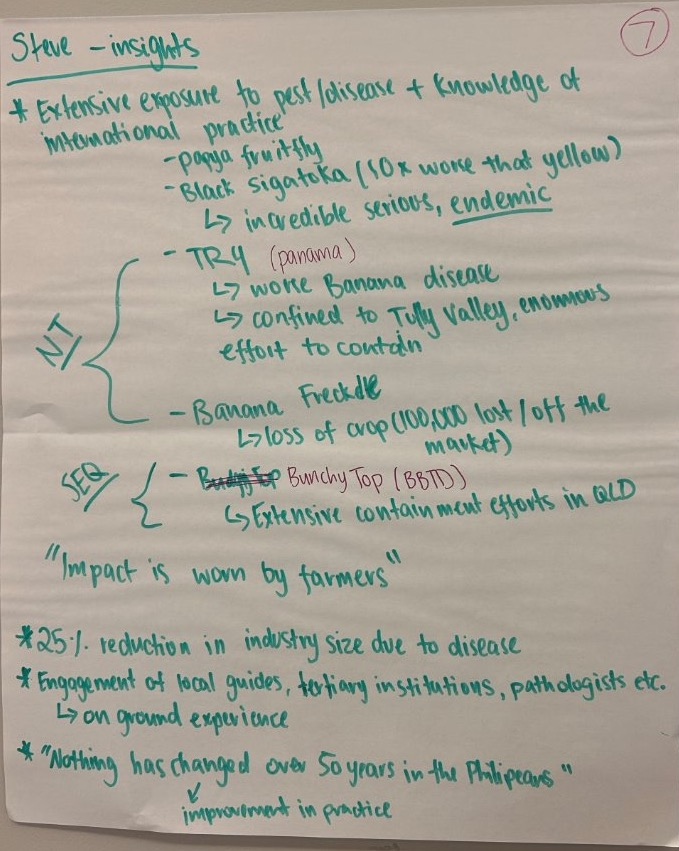 7
Steve - insights
* Extensive exposure to pest/disease + Knowledge of
international practice
- papya fruitfly
- Black Sigatoka (10x worse that yellow)
↳ incredible serious, endemic
NT
- TR4 (panama)
↳ worse Banana disease
↳ confined to Tully Valley, enormous
effort to contain
- Banana Freckdle
↳ loss of crop (100,000 lost / off the
market)
SEQ
- Bunchy Top (BBTD)
↳ Extensive containment efforts in QLD
"Impact is worn by farmers"
* 25% reduction in industry size due to disease
* Engagement of local guides, tertiary institutions, pathologists etc.
↳ on ground experience
* "Nothing has changed over 50 years in the Philipeans"
↙
improvement in practice